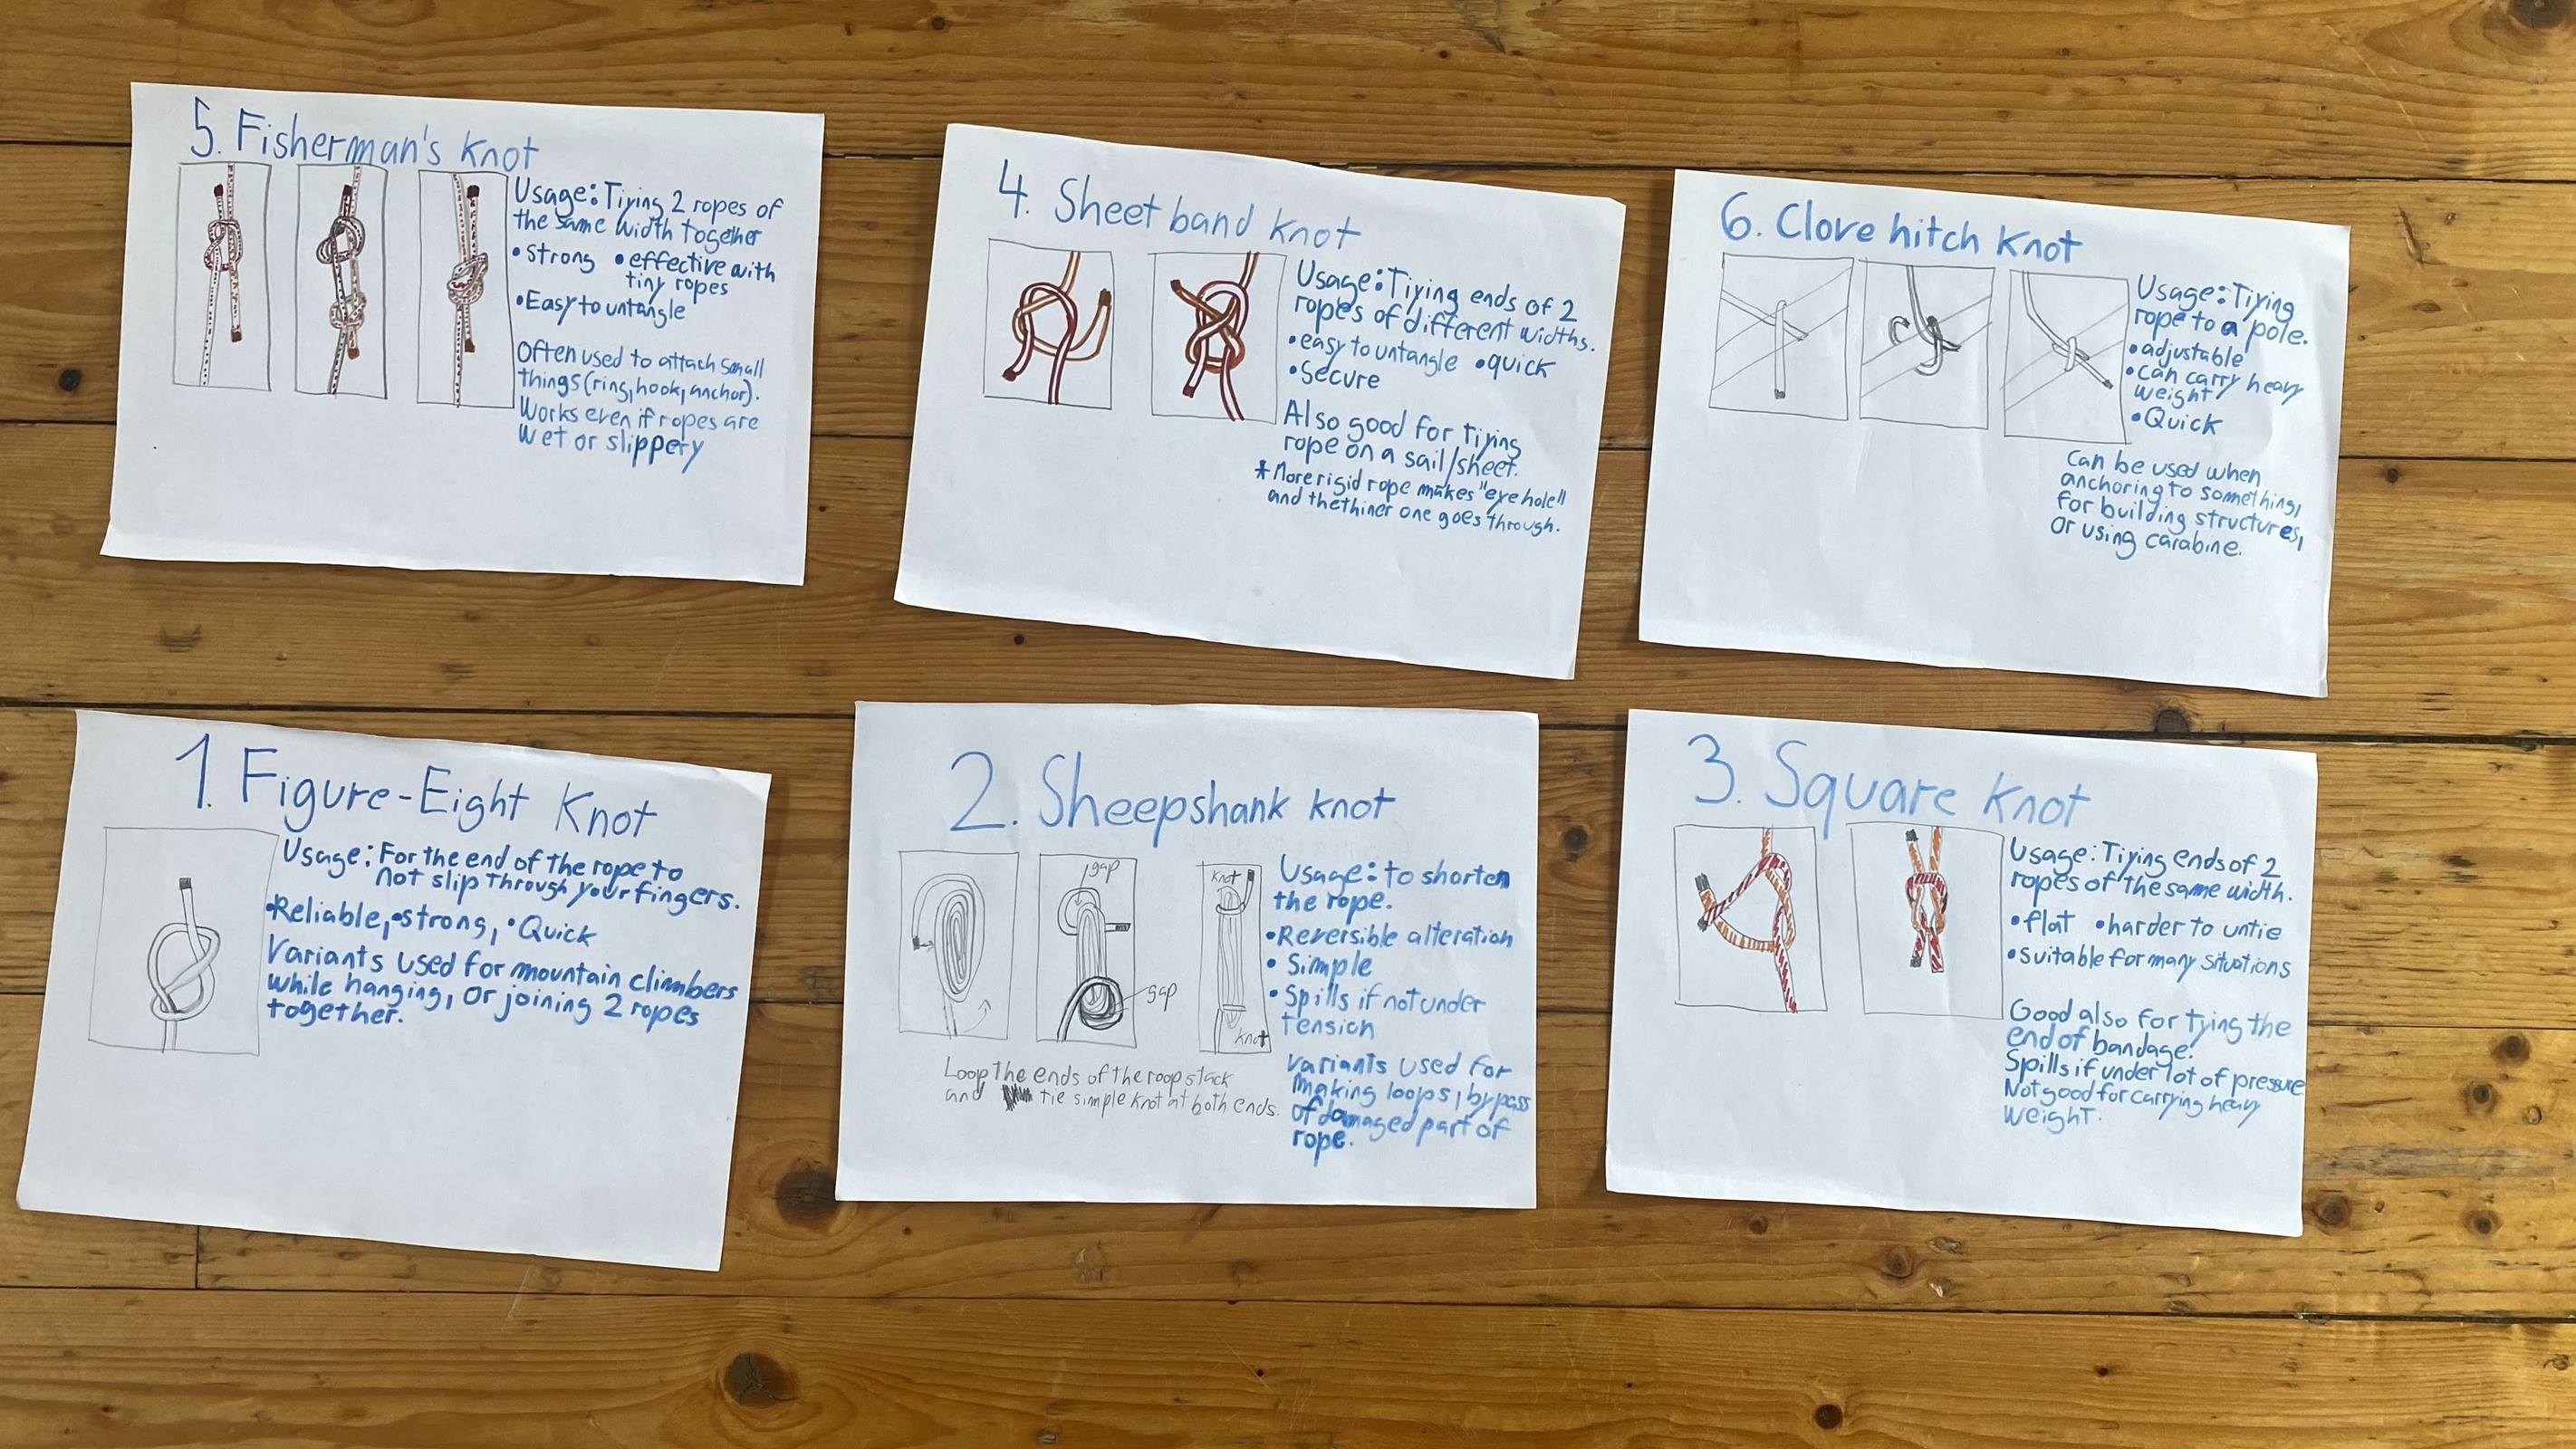 5. Fisherman's Knot
Usage: Tiying 2 ropes of
the same width together
• strong • effective with
tiny ropes
• Easy to untangle
Often used to attach small
things (ring, hook, anchor).
Works even if ropes are
wet or slippery
4. Sheet band knot
Usage: Tiying ends of 2
ropes of different widths.
• easy to untangle • quick
• Secure
Also good for tiying
rope on a sail/sheet.
* More rigid rope makes "eye hole"
and the thiner one goes through.
6. Clove hitch Knot
Usage: Tiying
rope to a pole.
• adjustable
• can carry heavy
weight
• Quick
Can be used when
anchoring to something,
for building structures,
or using carabine.
1. Figure-Eight Knot
Usage: For the end of the rope to
not slip through your fingers.
• Reliable, • strong, • Quick
Variants used for mountain climbers
while hanging, or joining 2 ropes
together.
2. Sheepshank knot
gap
gap
knot
knot
Loop the ends of the roop stack
and tie simple knot at both ends.
Usage: to shorten
the rope.
• Reversible alteration
• Simple
• Spills if not under
tension
Variants used for
making loops, bypass
of damaged part of
rope.
3. Square Knot
Usage: Tiying ends of 2
ropes of the same width.
• flat • harder to untie
• suitable for many situations
Good also for tying the
end of bandage.
Spills if under lot of pressure
Not good for carrying heavy
weight.